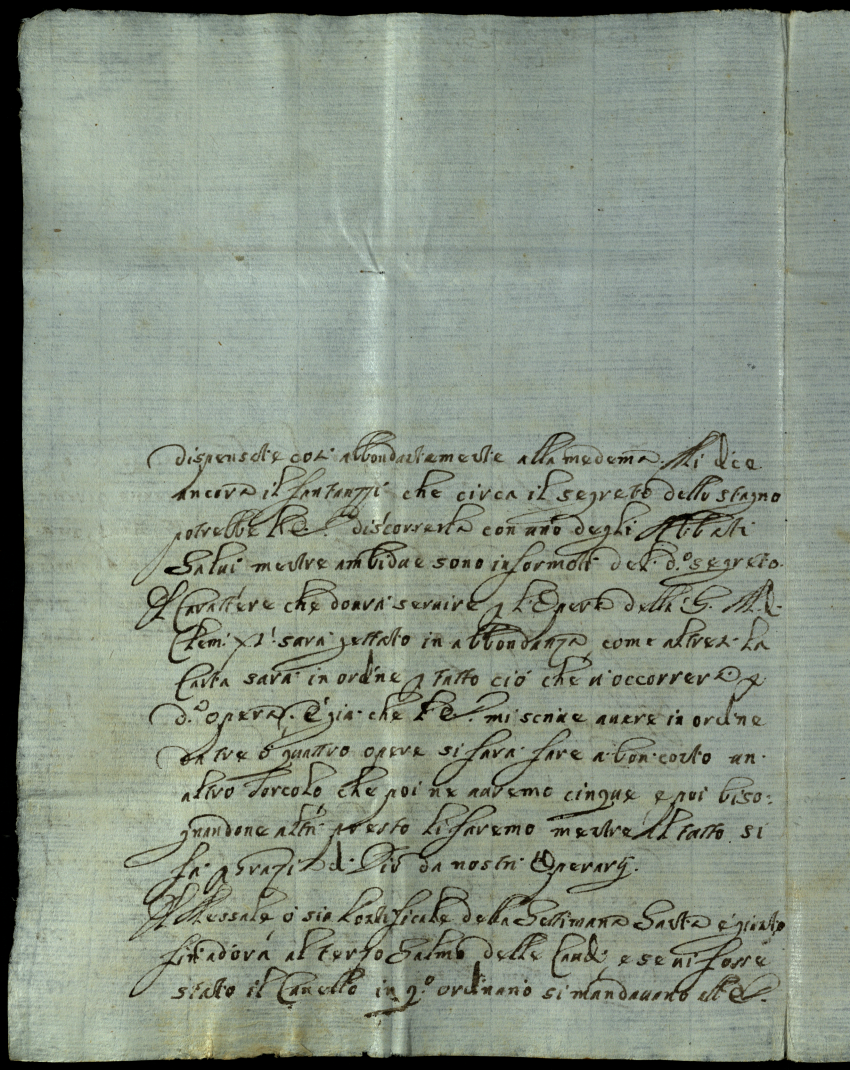 dispensate così abbondantemente alla medema. Mi dice
ancora il Fantauzzi che circa il segreto dello stagno
potrebbe V.E. discorrerla con uno degli Abbati
Salvi mentre ambidue sono informati del d.º segreto.
Il Carattere che dovrà servire p l'Opera della S. M. di
Clem: XIº sarà gettato in abbondanza come altresì la
Carta sarà in ordine p tutto ciò che vi occorrerà p
d.º opera. E già che V.E. mi scrive avere in ordine
da tre ò quattro opere si farà fare a bon conto un
altro Torcolo che poi ne avremo cinque e poi biso:
gnandone altri presto li faremo mentre il tutto si
fà p grazia di Dio da nostri Operarij.
Il Messale ò sia Pontificale della Settimana Santa è giunto
fin adora al terzo Salmo delle Laudi e se vi fosse
stato il Cavallo in q.º ordinario si mandavano all' E.